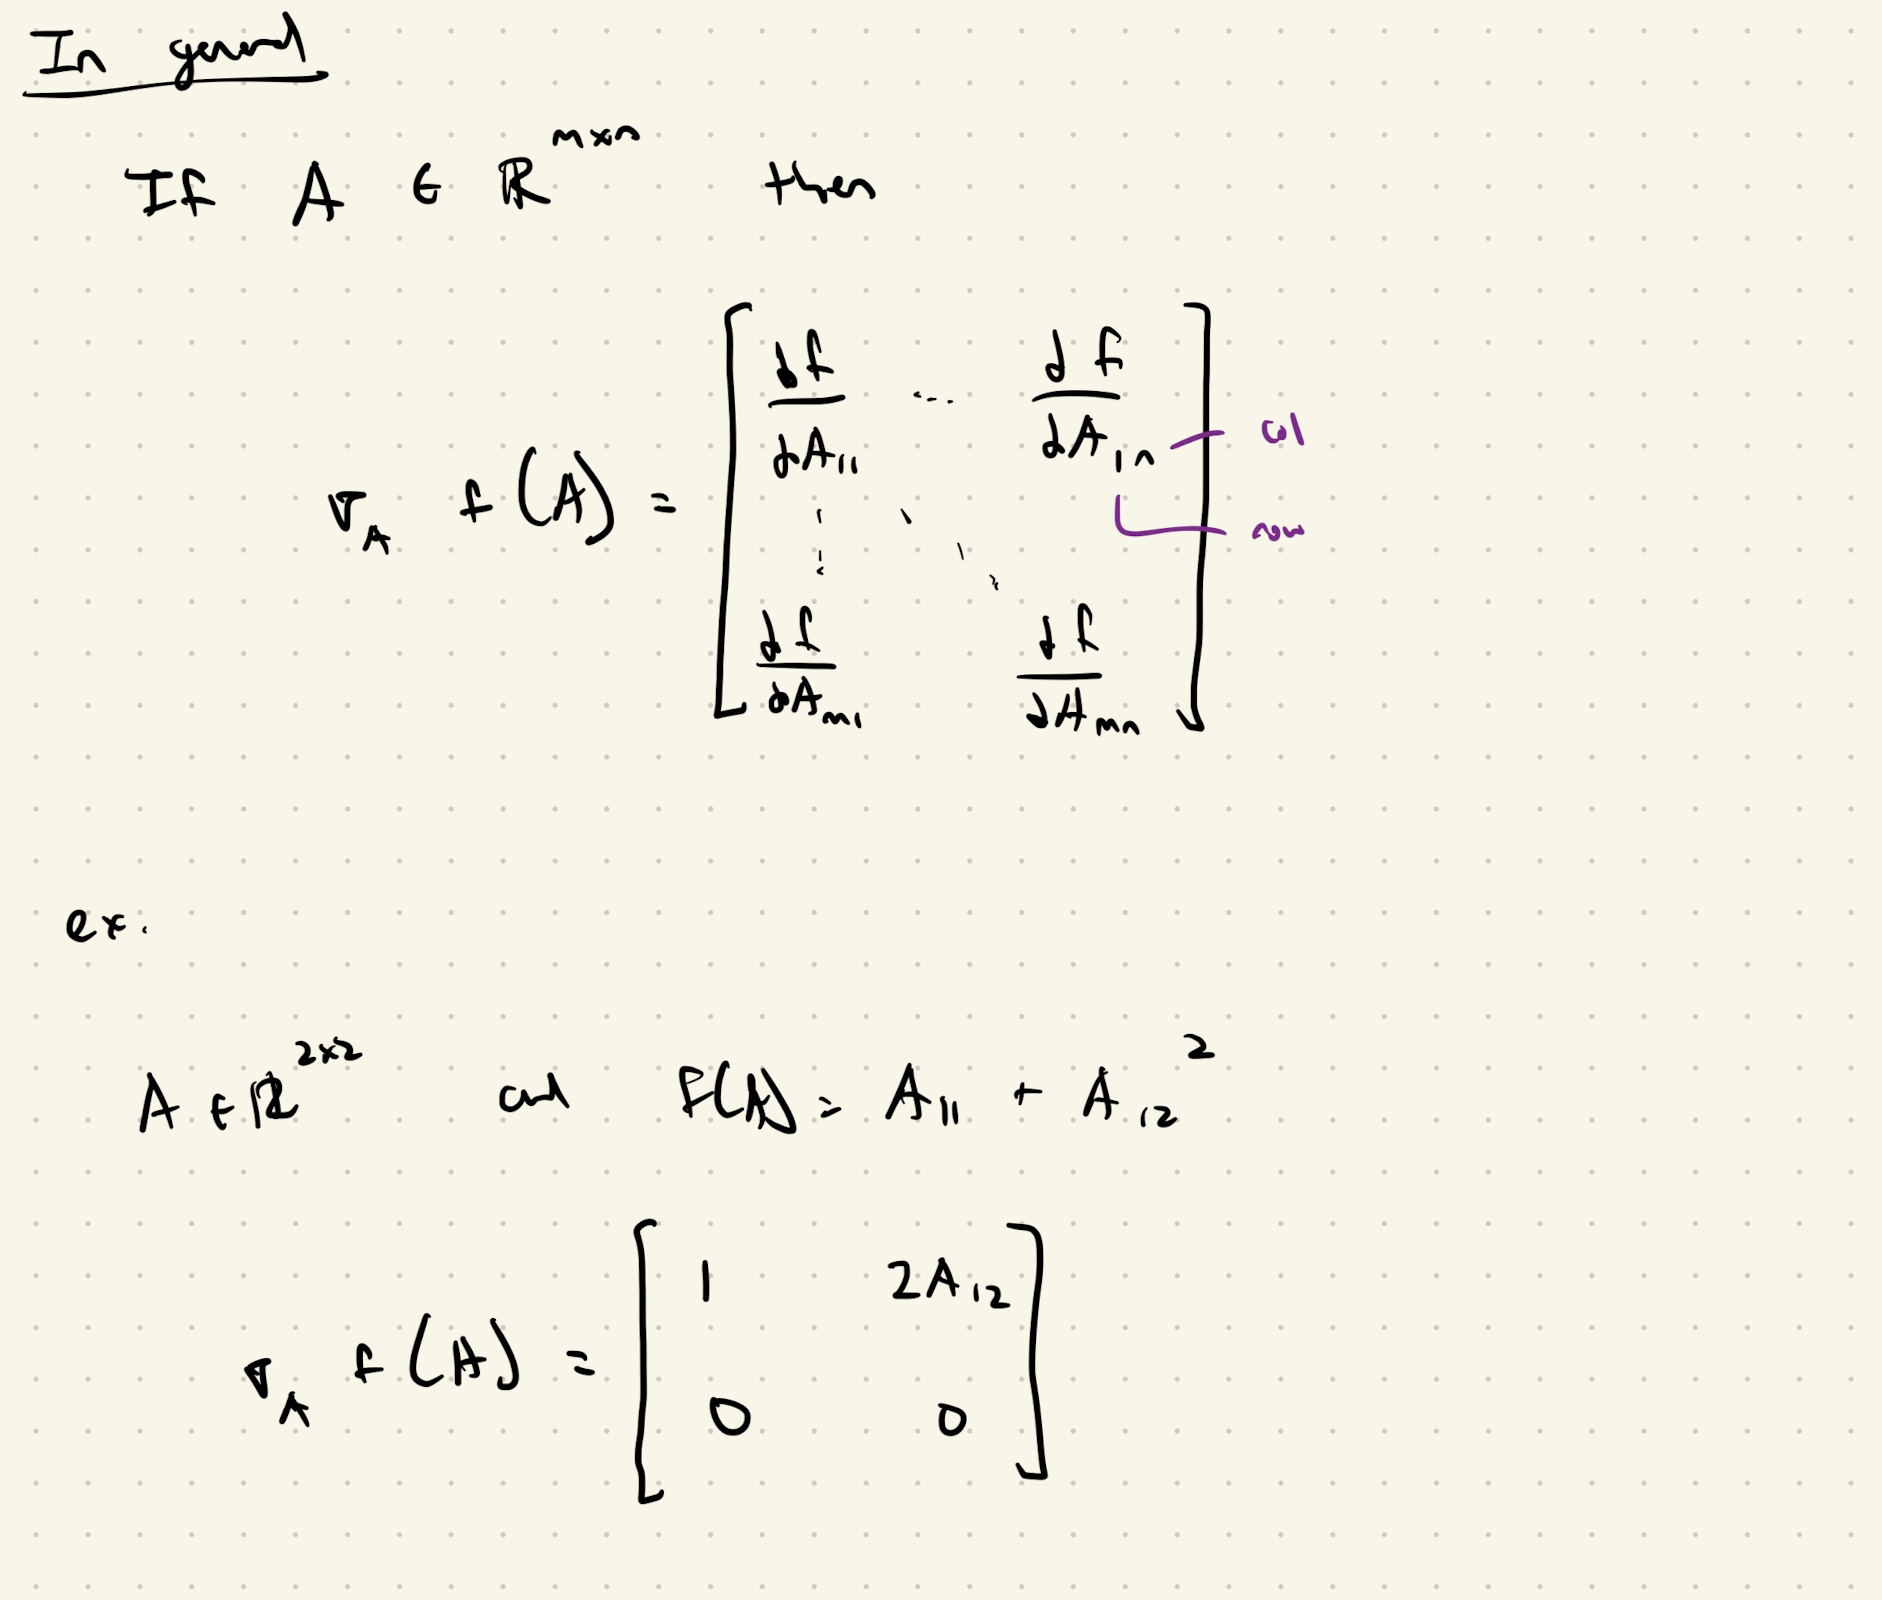 In general
If A ∈ ℝ^{m×n} then
∇_A f(A) = [ df/dA_{11} ... df/dA_{1n} ; ⋮ ⋱ ; df/dA_{m1} df/dA_{mn} ]
col
row
ex.
A ∈ ℝ^{2×2} and f(A) = A_{11} + A_{12}^2
∇_A f(A) = [ 1 2A_{12} ; 0 0 ]